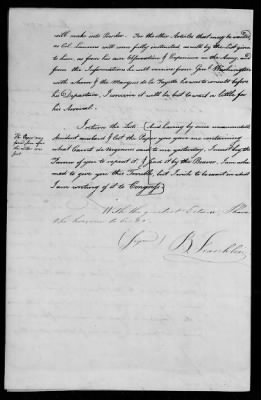 will make into Powder. For the other Articles that may be wanted,
as Col. Laurens will come fully instructed, as well by the List given
to him, as from his own Observation & Experience in the Army, and
from the Information he will receive from Gen. Washington
with whom & the Marquis de la Fayette he was to consult before
his Departure, I conceive it will be best to wait a little for
his Arrival.
I return the Lists
having by some unaccountable
Accident mislaid & lost the Paper you gave me containing
what Count de Vergennes said to me yesterday, I must beg the
Favour of you to repeat it, & send it by the Bearer. I am
asham'd to give you this Trouble, but I wish to be exact in what
I am writing of it to Congress.
The Copy may
from
With the greatest Esteem, I have
the honour to be &c.
(signed) B. Franklin